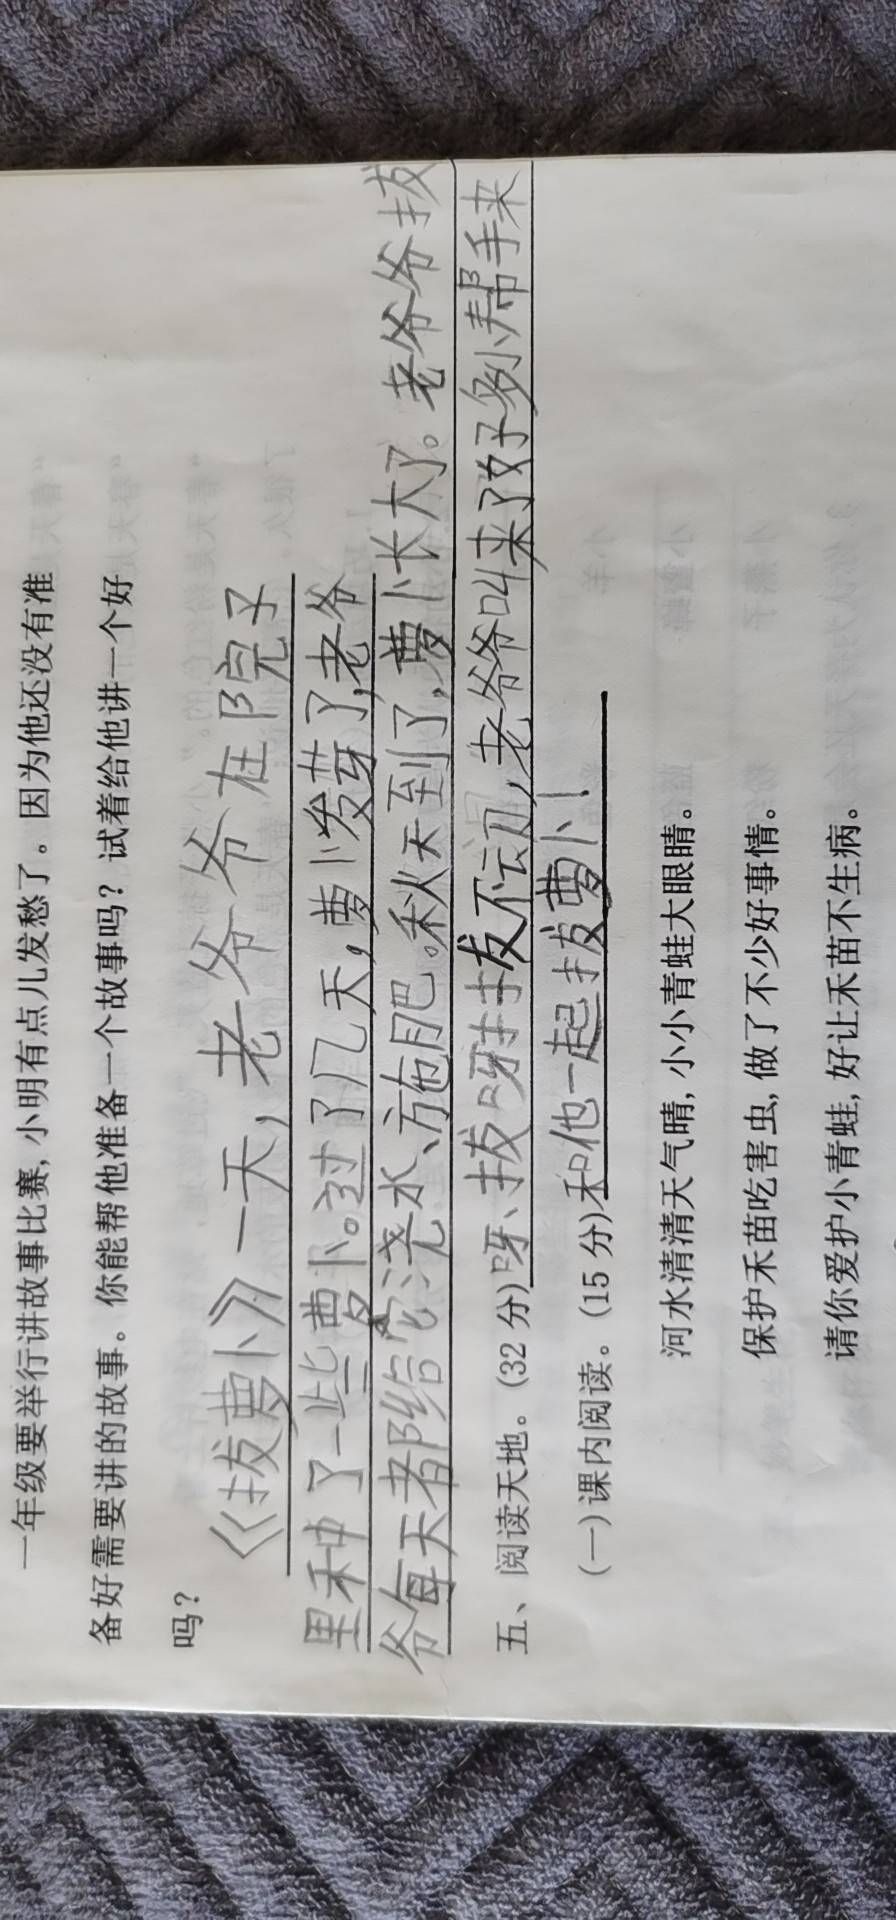 一年级要举行讲故事比赛,小明有点儿发愁了。因为他还没有准
备好需要讲的故事。你能帮他准备一个故事吗？试着给他讲一个好
吗？
《拔萝卜》一天,老爷爷在院子
里种了一些萝卜。过了几天,萝卜发芽了,老爷
爷每天都给它浇水、施肥。秋天到了,萝卜长大了。老爷爷拔
呀、拔呀拔不动,老爷爷叫来了好多小帮手来
和他一起拔萝卜！
五、阅读天地。(32 分)
(一)课内阅读。(15 分)
河水清清天气晴,小小青蛙大眼睛。
保护禾苗吃害虫,做了不少好事情。
请你爱护小青蛙,好让禾苗不生病。